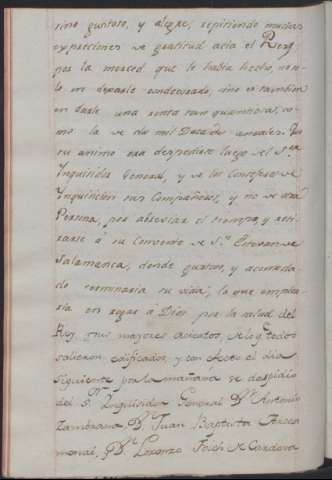 sino gustoso, y alegre, repitiendo muchas
expreciones de gratitud acia el Rey,
por la merced que le había hecho, no so-
lo en dexarle condecorado, sino es tambien
en darle una renta tan quantiosa, co-
mo la de dos mil Ducados anuales. Que
su animo era despedirse luego de el S.or
Inquisidor General, y de los Consejeros de
Inquisicion sus Compañeros, y no de otra
Persona, por abreviar el tiempo, y reti-
rarse á su Convento de S.n Estevan de
Salamanca, donde gustoso, y acomoda-
do terminaria su vida, la que emplea-
ria en rogar á Dios por la salud del
Rey, sus mayores aciertos, de lo q.e todos
salieron edificados, y con efecto el dia
siguiente por la mañana se despidio
del S.or Inquisidor General D.n Antonio
Zambrana D.n Juan Baptista Arzea
monai, D.n Lorenzo Folch de Cardona